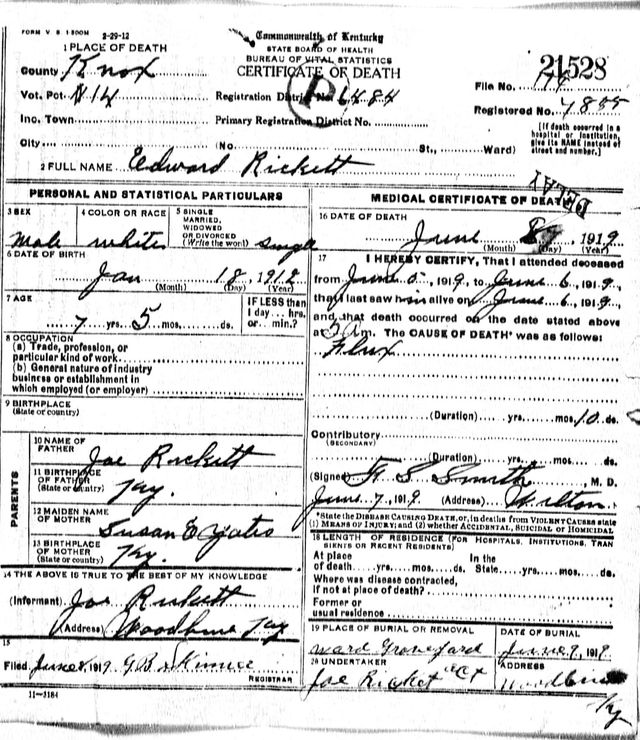 FORM V S 1 500M 2-29-12
Commonwealth of Kentucky
STATE BOARD OF HEALTH
BUREAU OF VITAL STATISTICS
CERTIFICATE OF DEATH
21528
1 PLACE OF DEATH
County Knox
File No. 74
Vot. Pct. N 14
Registration District No. 6484
Registered No.
Inc. Town
Primary Registration District No.
City (No. St., Ward)
[If death occurred in a hospital or institution, give its NAME instead of street and number.]
2 FULL NAME Edward Rickett
PERSONAL AND STATISTICAL PARTICULARS
3 SEX
male
4 COLOR OR RACE
white
5 SINGLE MARRIED, WIDOWED OR DIVORCED (Write the word)
single
6 DATE OF BIRTH
Jan 18, 1912
(Month) (Day) (Year)
7 AGE
7 yrs. 5 mos. ds.
IF LESS than 1 day... hrs. or... min.?
8 OCCUPATION
(a) Trade, profession, or particular kind of work
(b) General nature of industry business or establishment in which employed (or employer)
9 BIRTHPLACE
(State or country)
PARENTS
10 NAME OF FATHER Joe Rickett
11 BIRTHPLACE OF FATHER (State or country) Ky.
12 MAIDEN NAME OF MOTHER Susan E Yates
13 BIRTHPLACE OF MOTHER (State or country) Ky.
14 THE ABOVE IS TRUE TO THE BEST OF MY KNOWLEDGE
(Informant) Joe Rickett
(Address) Woodbine Ky
15
Filed June 8, 1919 REGISTRAR
11-3184
MEDICAL CERTIFICATE OF DEATH
DELAY
16 DATE OF DEATH
June 1919
(Month) (Day) (Year)
17 I HEREBY CERTIFY, That I attended deceased
from June 5, 1919, to June 6, 1919,
that I last saw him alive on June 6, 1919,
and that death occurred on the date stated above
at 5 A m. The CAUSE OF DEATH* was as follows:
Flux
(Duration) yrs. mos. 10 ds.
Contributory
(SECONDARY)
(Duration) yrs. mos. ds.
(Signed) S. Smith, M. D.
June 7, 1919 (Address) Wilton
*State the DISEASE CAUSING DEATH, or, in deaths from VIOLENT CAUSES state (1) MEANS OF INJURY; and (2) whether ACCIDENTAL, SUICIDAL or HOMICIDAL
18 LENGTH OF RESIDENCE (FOR HOSPITALS, INSTITUTIONS, TRANSIENTS OR RECENT RESIDENTS)
At place of death yrs. mos. ds. In the State yrs. mos. ds.
Where was disease contracted, if not at place of death?
Former or usual residence
19 PLACE OF BURIAL OR REMOVAL
Ward Graveyard
DATE OF BURIAL
June 1919
20 UNDERTAKER
Joe Ricket
ADDRESS
Woodbine
Ky